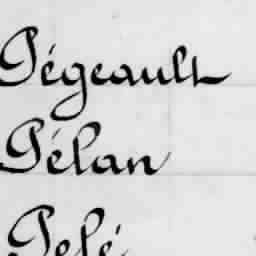 Pégeault
Pélan
Pelé